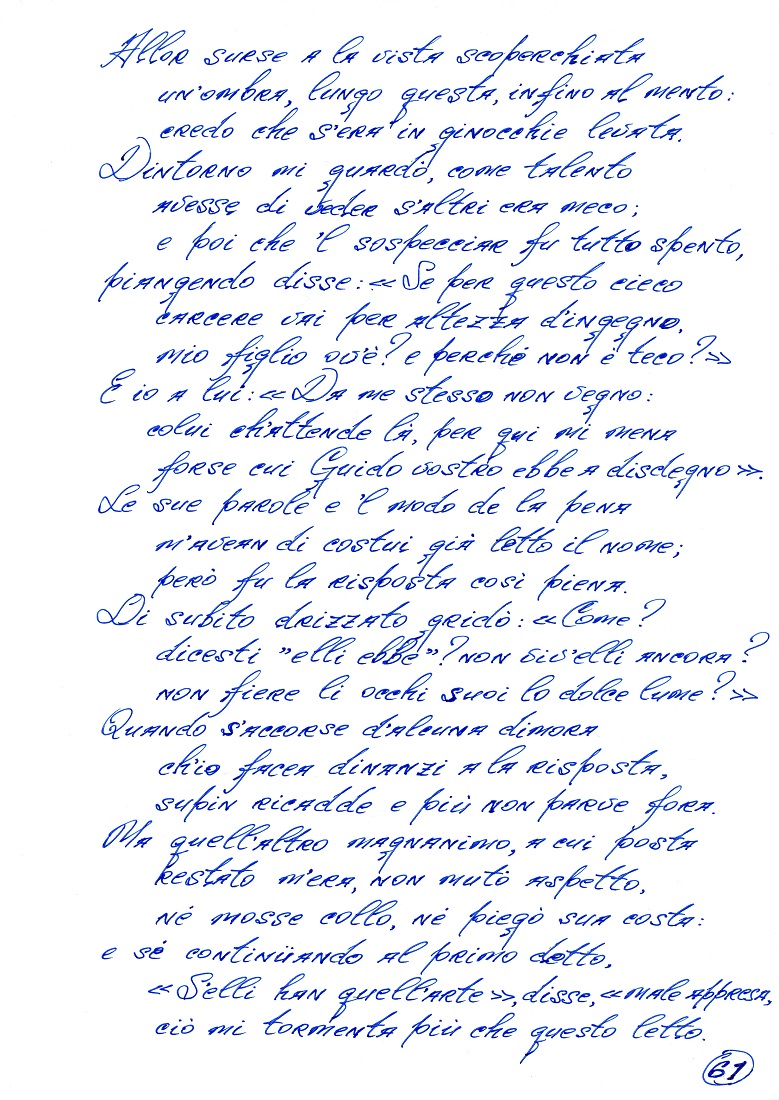 Allor surse a la vista scoperchiata
un'ombra, lungo questa, infino al mento:
credo che s'era in ginocchie levata.
Dintorno mi guardò, come talento
avesse di veder s'altri era meco;
e poi che 'l sospecciar fu tutto spento,
piangendo disse: «Se per questo cieco
carcere vai per altezza d'ingegno,
mio figlio ov'è? e perché non è teco?»
E io a lui: «Da me stesso non vegno:
colui ch'attende là, per qui mi mena
forse cui Guido vostro ebbe a disdegno».
Le sue parole e 'l modo de la pena
m'avean di costui già letto il nome;
però fu la risposta così piena.
Di subito drizzato gridò: «Come?
dicesti "elli ebbe"? non viv'elli ancora?
non fiere li occhi suoi lo dolce lume?»
Quando s'accorse d'alcuna dimora
ch'io facea dinanzi a la risposta,
supin ricadde e più non parve fora.
Ma quell'altro magnanimo, a cui posta
restato m'era, non mutò aspetto,
né mosse collo, né piegò sua costa:
e sé continüando al primo detto,
«S'elli han quell'arte», disse, «male appresa,
ciò mi tormenta più che questo letto.
61